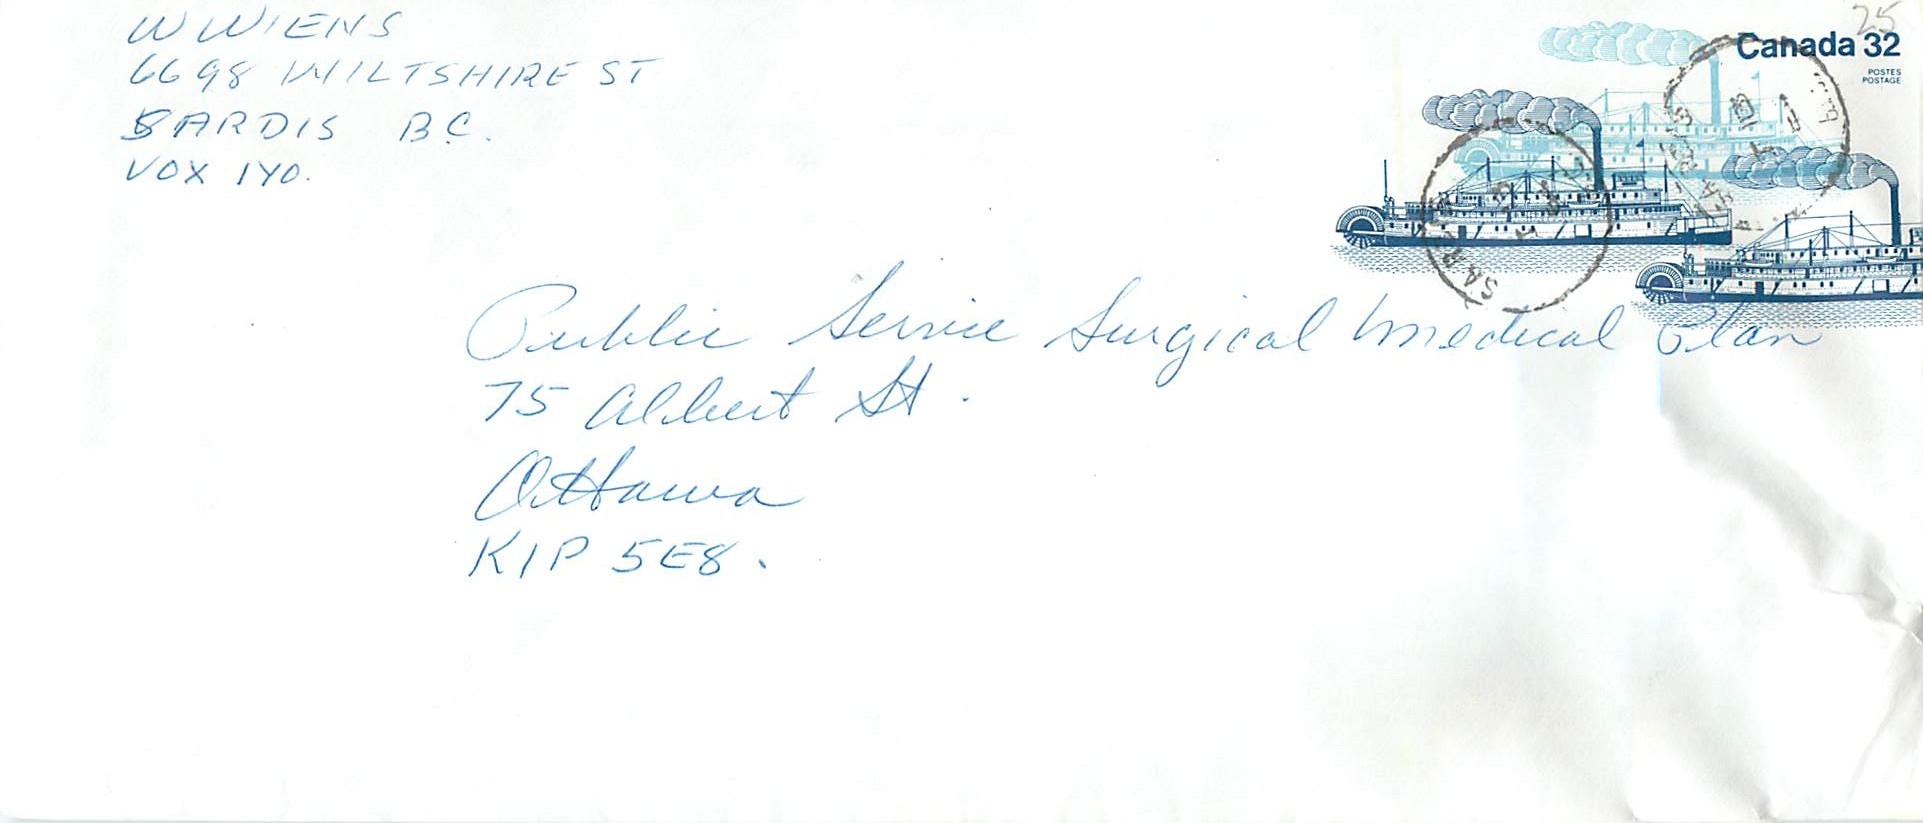 W WIENS
6698 WILTSHIRE ST
SARDIS B.C.
V0X 1Y0.
25
Canada 32
POSTES
POSTAGE
Public Service Surgical Medical Plan
75 Albert St.
Ottawa
K1P 5E8.